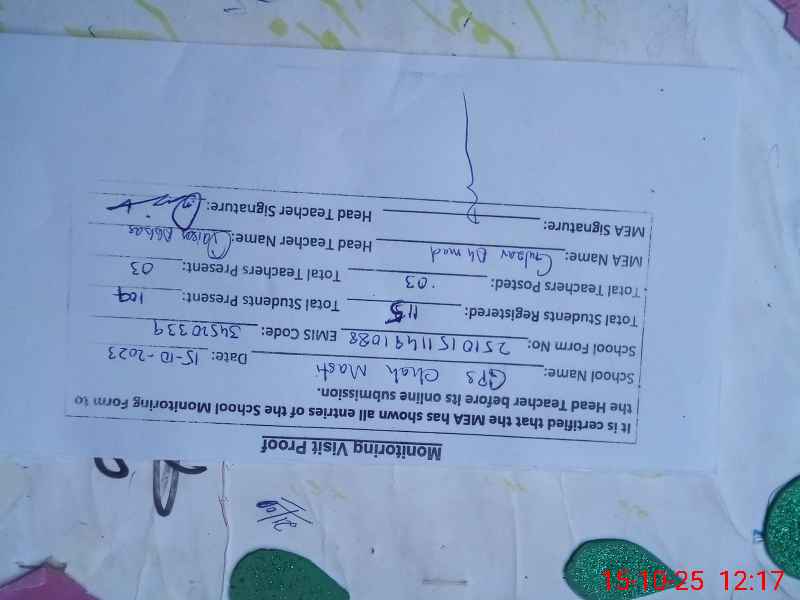 Monitoring Visit Proof
It is certified that the MEA has shown all entries of the School Monitoring Form to
the Head Teacher before its online submission.
School Name: GPS Chah Masti Date: 15-10-2023
School Form No: 251015111491088 EMIS Code: 34520339
Total Students Registered: 115 Total Students Present: 109
Total Teachers Posted: 03 Total Teachers Present: 03
MEA Name: Gulzar Ahmad Head Teacher Name: Abbas
MEA Signature: Head Teacher Signature:
15-10-25 12:17